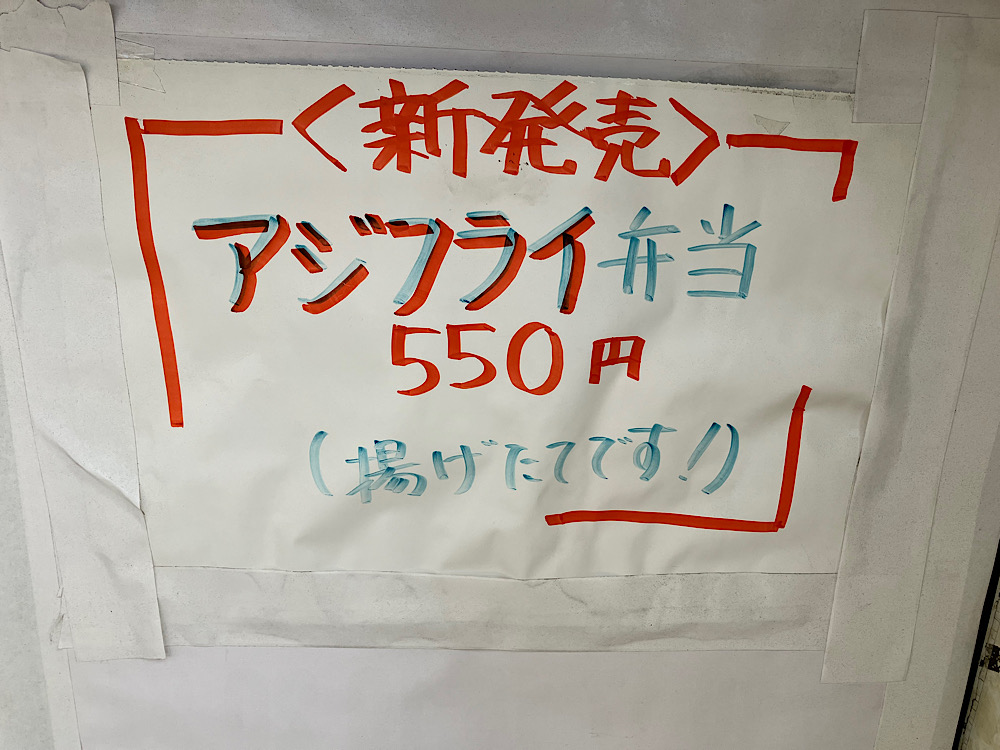 〈新発売〉
アジフライ弁当
550円
(揚げたてです!)